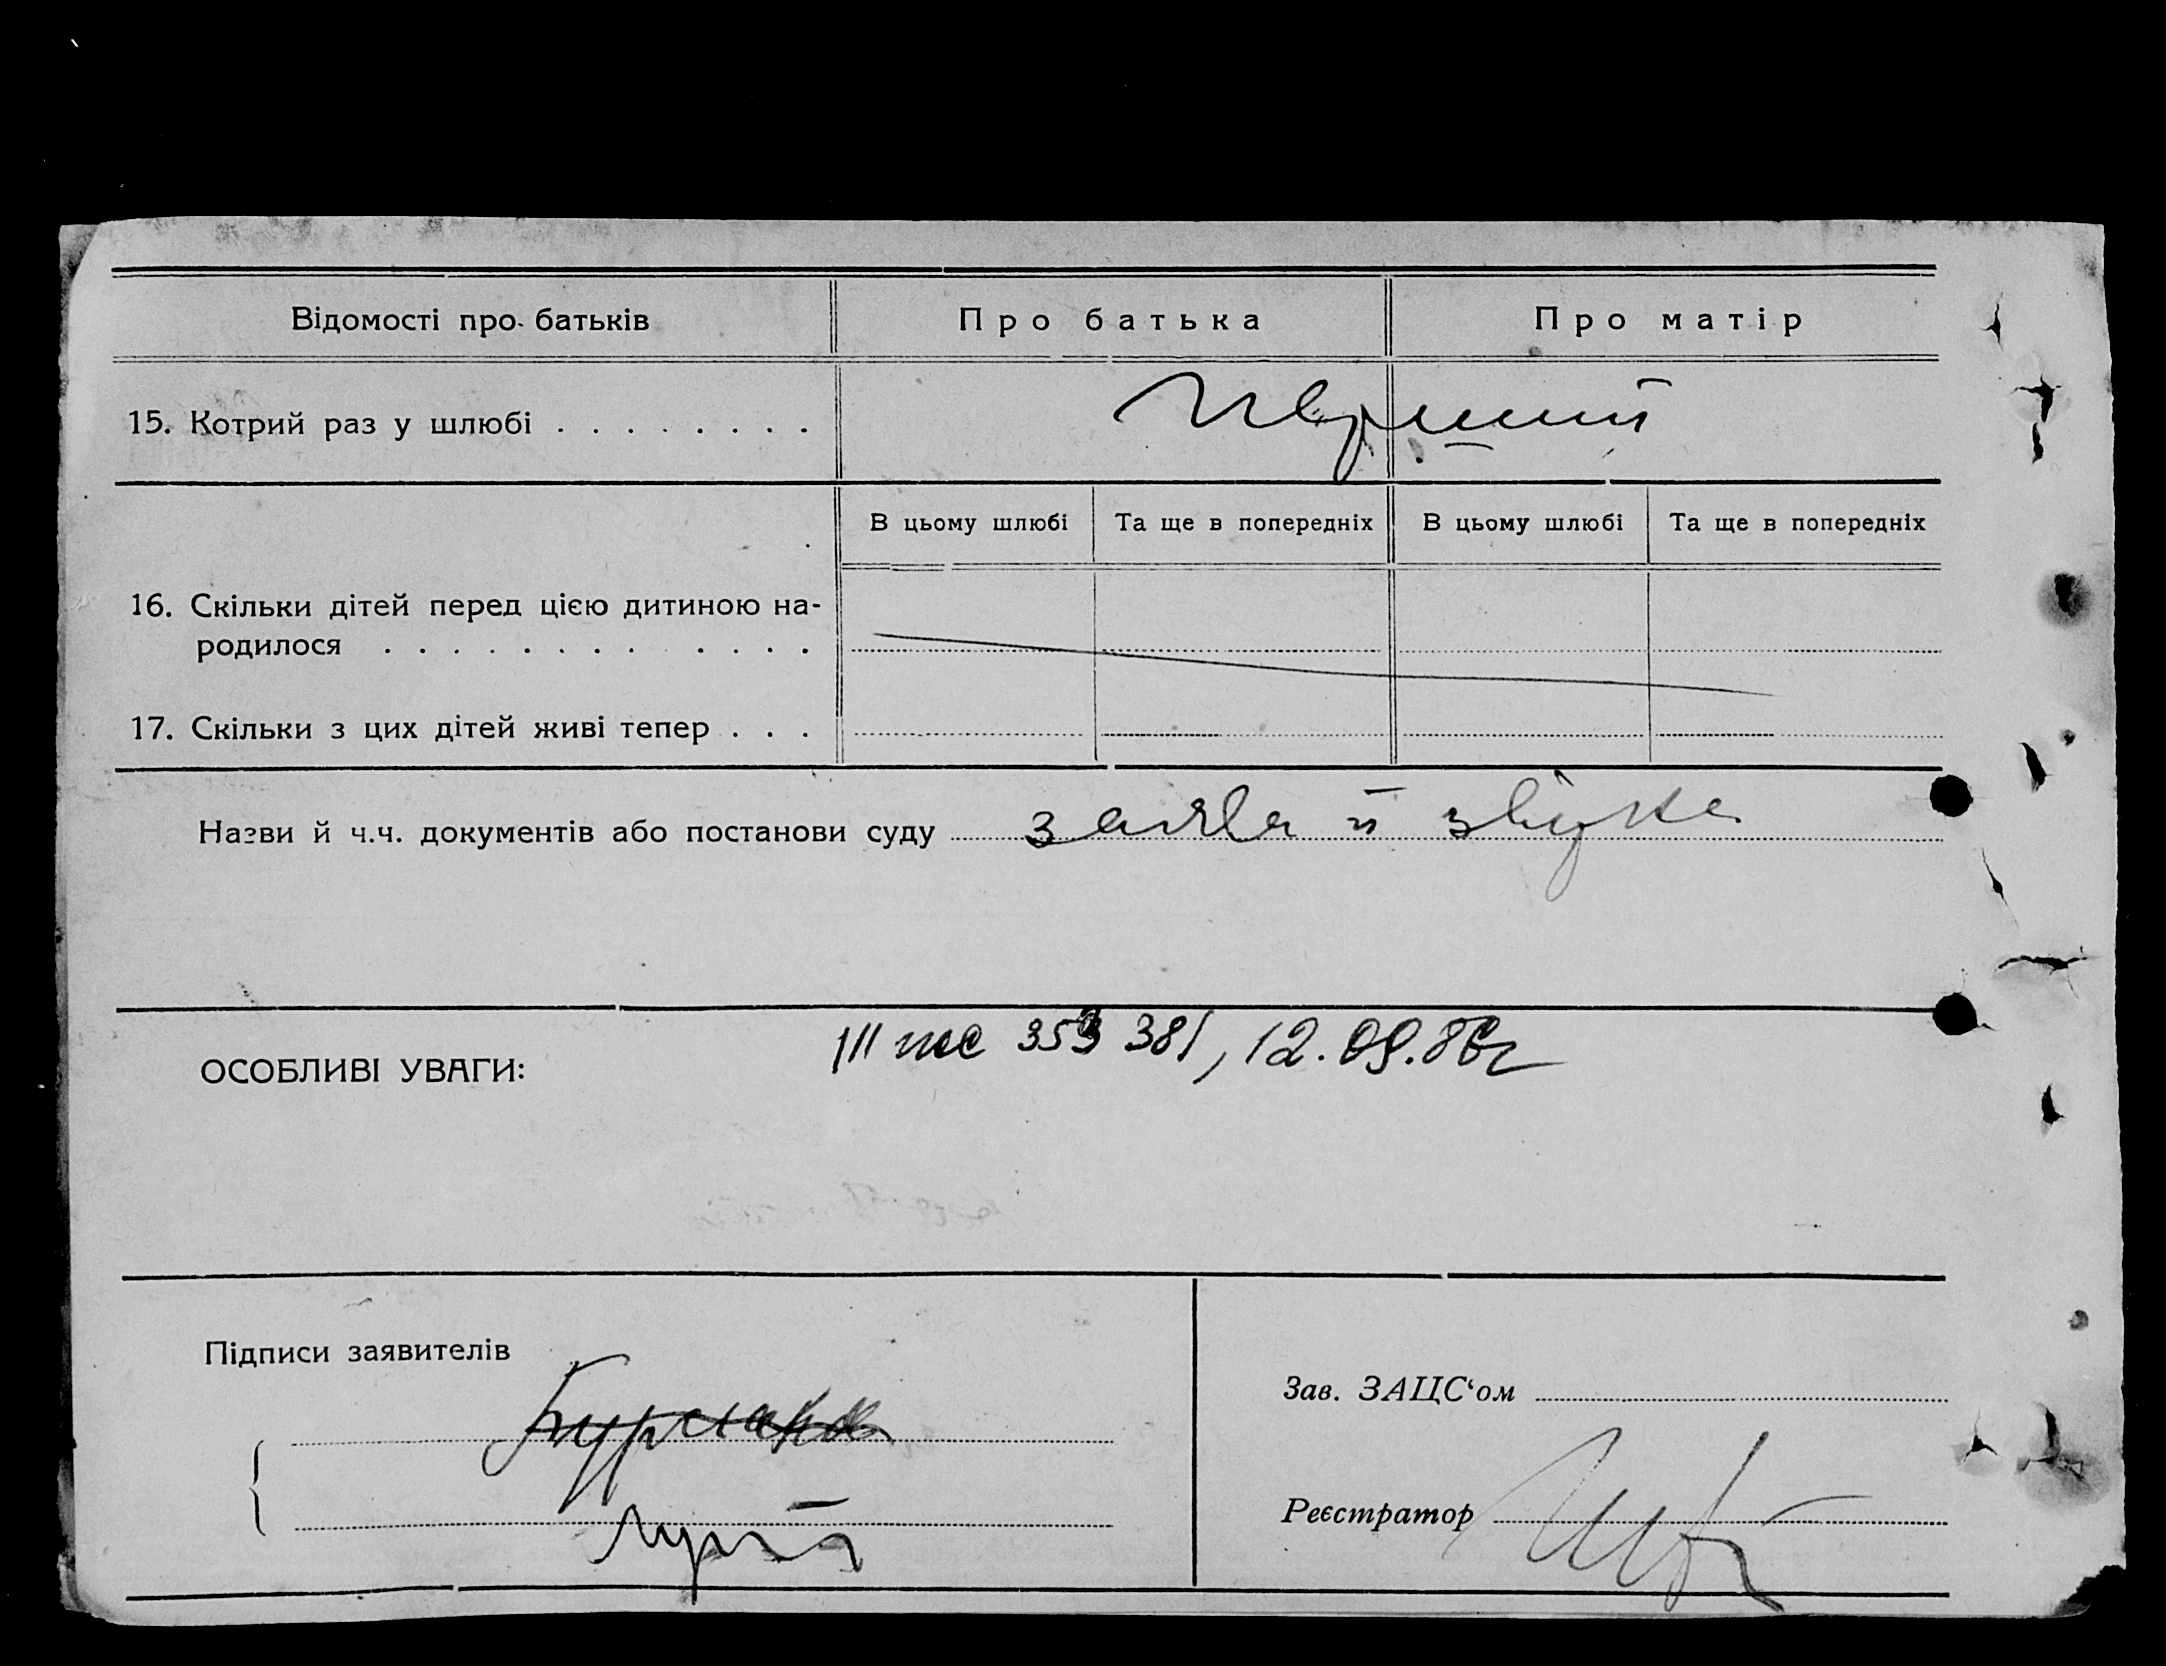 Відомості про батьків Про батька Про матір
15. Котрий раз у шлюбі . . . . . . . . перший
В цьому шлюбі Та ще в попередніх В цьому шлюбі Та ще в попередніх
16. Скільки дітей перед цією дитиною на-
родилося . . . . . . . . . . . .
17. Скільки з цих дітей живі тепер . . .
Назви й ч.ч. документів або постанови суду заява й
ОСОБЛИВІ УВАГИ: 381, 12.09.
Підписи заявителів
Зав. ЗАЦС‘ом
Реєстратор